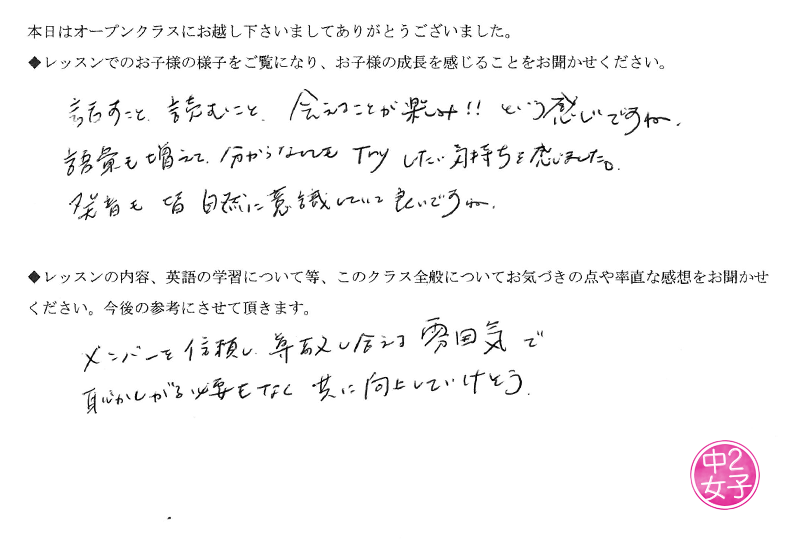 本日はオープンクラスにお越し下さいましてありがとうございました。
◆レッスンでのお子様の様子をご覧になり、お子様の成長を感じることをお聞かせください。
話すこと、読むこと、会えることが楽しみ!! という感じですね。
語彙も増えて、分からないもTryしたい気持ちを感じました。
発音も皆自然に意識していて良いですね。
◆レッスンの内容、英語の学習について等、このクラス全般についてお気づきの点や率直な感想をお聞かせ
ください。今後の参考にさせて頂きます。
メンバーを信頼し、尊敬し合える雰囲気で
恥ずかしがる必要もなく共に向上していけそう。
中2
女子